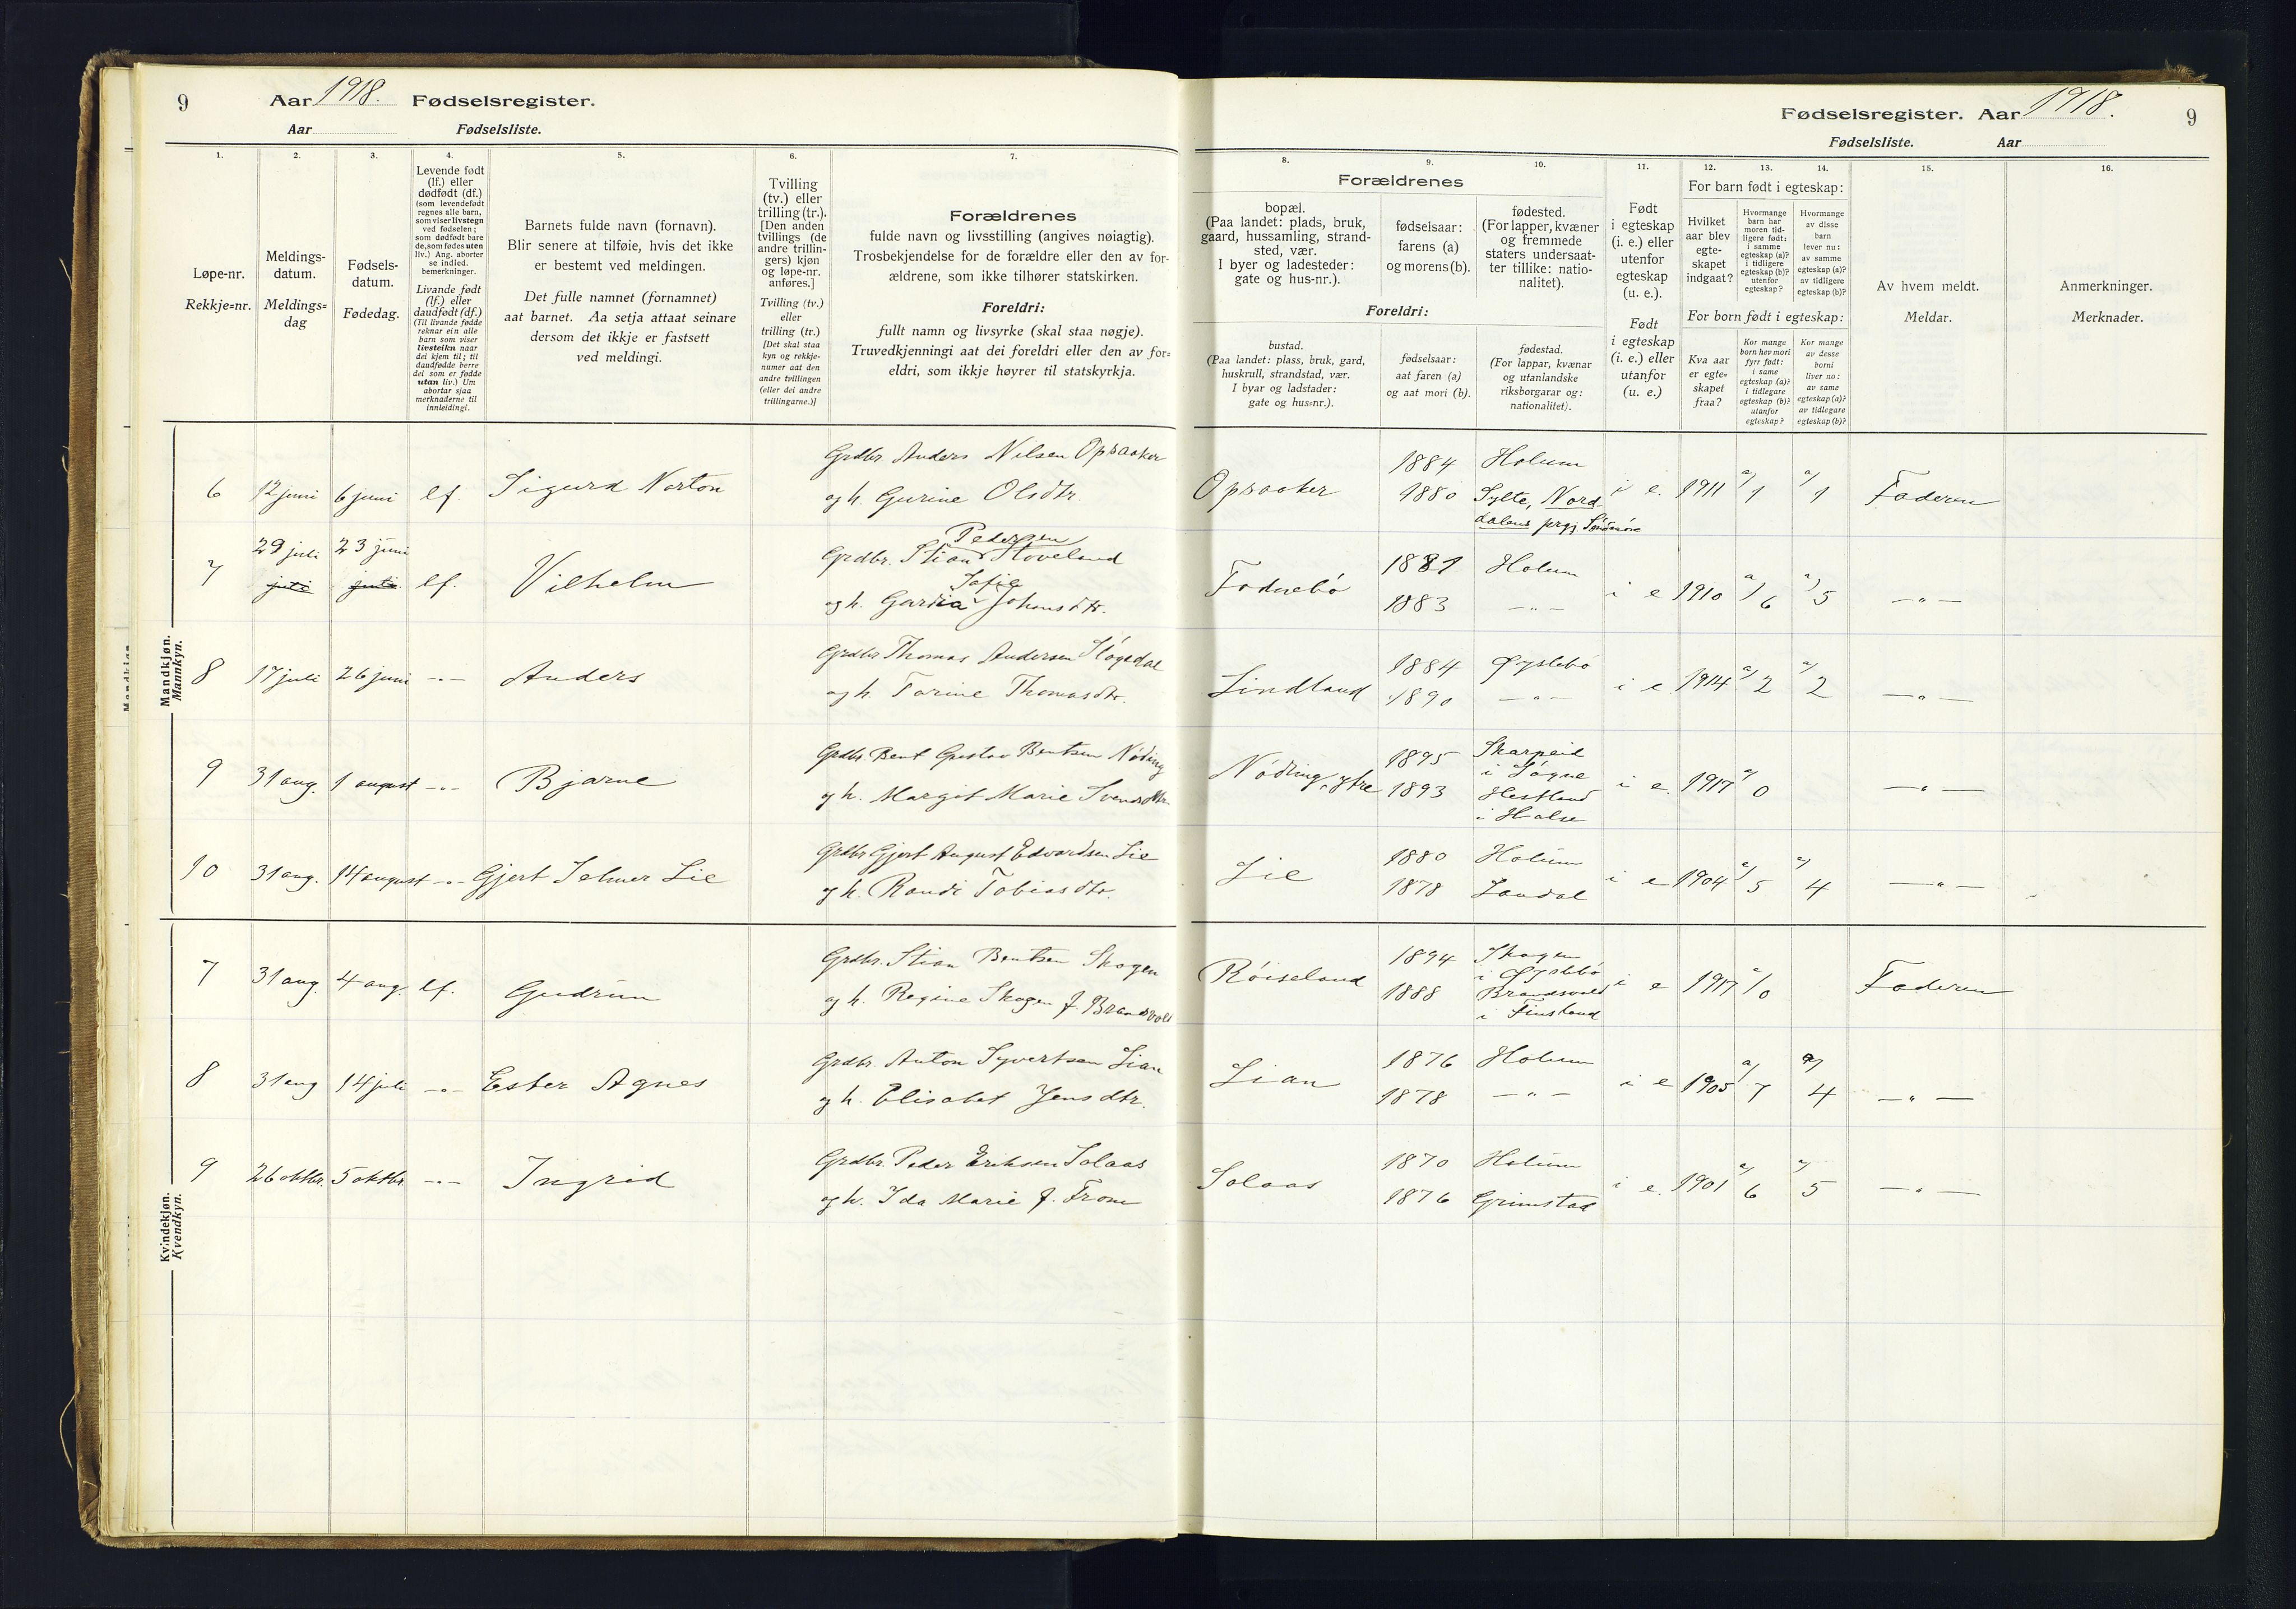 9 Aar 1918. Fødselsregister.
Aar Fødselsliste.
1.
Løpe-nr.
Rekkje=nr.
2.
Meldings-
datum.
Meldings=
dag
3.
Fødsels-
datum.
Fødedag.
4.
Levende født
(lf.) eller
dødfødt (df.)
(som levendefødt
regnes alle barn,
som viser livstegn
ved fødselen;
som dødfødt bare
de, som fødes uten
liv.) Ang. aborter
se indled.
bemerkninger.
Livande født
(lf.) eller
daudfødt (df.)
(Til livande fødde
reknar ein alle
barn som viser
livsteikn naar
dei kjem til; til
daudfødde berre
dei som er fødde
utan liv.) Um
abortar sjaa
merknaderne til
innleidingi.
5.
Barnets fulde navn (fornavn).
Blir senere at tilføie, hvis det ikke
er bestemt ved meldingen.
Det fulle namnet (fornamnet)
aat barnet. Aa setja attaat seinare
dersom det ikkje er fastsett
ved meldingi.
6.
Tvilling
(tv.) eller
trilling (tr.).
[Den anden
tvillings (de
andre trillin-
gers) kjøn
og løpe-nr.
anføres.]
Tvilling (tv.)
eller
trilling (tr.)
[Det skal staa
kyn og rekkje-
numer aat den
andre tvillingen
(eller dei andre
trillingarne.)]
7.
Forældrenes
fulde navn og livsstilling (angives nøiagtig).
Trosbekjendelse for de forældre eller den av for-
ældrene, som ikke tilhører statskirken.
Foreldri:
fullt namn og livsyrke (skal staa nøgje).
Truvedkjenningi aat dei foreldri eller den av for=
eldri, som ikkje høyrer til statskyrkja.
Mandkjøn.
Mannkyn.
6 12 juni 6 juni lf. Sigurd Norton
Grdbr. Anders Nilsen Opsaaker
og h. Gurine Olsdtr.
7 29 juli 23 juni lf. Vilhelm
juli juli
Pedersen
Grdbr. Stian Hoveland
Sofie
og h. Johansdtr.
8 17 juli 26 juni -"- Anders
Grdbr Thomas Andersen Støgedal
og h. Torine Thomasdtr.
9 31 aug. 1 august -"- Bjarne
Grdbr. Bent Gustav Bentsen Nöding
og h. Margit Marie Svendsdtr.
10 31 aug. 14 august -"- Gjert Selmer Lie
Grdbr Gjert August Edvardsen Lie
og h. Randi Tobiasdtr.
Kvindekjøn.
Kvendkyn.
7 31 aug. 4 aug. lf. Gudrun
Grdbr. Stian Bentsen Skogen
og h. Regine Skogen f. Brandsvold
8 31 aug 14 juli -"- Ester Agnes
Grdbr. Anton Syvertsen Lian
og h. Elisabet Jensdtr.
9 26 oktbr. 5 oktbr. -"- Ingrid
Grdbr. Peder Eriksen Solaas
og h. Ida Marie f. From
Fødselsregister. Aar 1918. 9
Fødselsliste. Aar
8.
Forældrenes
bopæl.
(Paa landet: plads, bruk,
gaard, hussamling, strand-
sted, vær.
I byer og ladesteder:
gate og hus-nr.).
Foreldri:
bustad.
(Paa landet: plass, bruk, gard,
huskrull, strandstad, vær.
I byar og ladstader:
gate og hus=nr.).
9.
fødselsaar:
farens (a)
og morens (b).
fødselsaar:
aat faren (a)
og aat mori (b).
10.
fødested.
(For lapper, kvæner
og fremmede
staters undersaat-
ter tillike: natio-
nalitet).
fødestad.
(For lappar, kvænar
og utanlandske
riksborgarar og:
nationalitet).
11.
Født
i egteskap
(i. e.) eller
utenfor
egteskap
(u. e.).
Født
i egteskap
(i. e.) eller
utanfor
(u. e.)
For barn født i egteskap:
12.
Hvilket
aar blev
egte-
skapet
indgaat?
For born født i egteskap:
Kva aar
er egte=
skapet
fraa?
13.
Hvormange
barn har
moren tid-
ligere født:
i samme
egteskap (a)?
i tidligere
egteskap (b)?
utenfor
egteskap?
Kor mange
born hev mori
fyrr født:
i same
egteskap (a)?
i tidlegare
egteskap (b)?
utanfor
egteskap?
14.
Hvormange
av disse
barn
lever nu:
av samme
egteskap (a)?
av tidligere
egteskap (b)?
Kor mange
av desse
borni
liver no:
av same
egteskap (a)?
av tidlegare
egteskap (b)?
15.
Av hvem meldt.
Meldar.
16.
Anmerkninger.
Merknader.
Opsaaker 1884 Holum
1880 Sylte, Nord- i e. 1911 a/1 a/1 Faderen
dalens prgj. Söndmöre
Fodnebö 1881 Holum
1883 -"- i e 1910 a/6 a/5 -"-
Lindland 1884 Øyslebö
1890 -"- i e. 1914 a/2 a/2 -"-
Nöding, ytre 1895 Skarpeid
i Sögne
1893 Hestland i e. 1917 a/0 -"-
i Halse
Lie 1880 Holum
1878 Laudal i e 1904 a/5 a/4 -"-
Röiseland 1894 Skogen
i Øyslebö
1888 Brandsvold i e 1917 a/0 Faderen
i Finsland
Lian 1876 Holum
1878 -"- i e 1905 a/7 a/4 -"-
Solaas 1870 Holum
1876 Grimstad i e. 1901 a/6 a/5 -"-